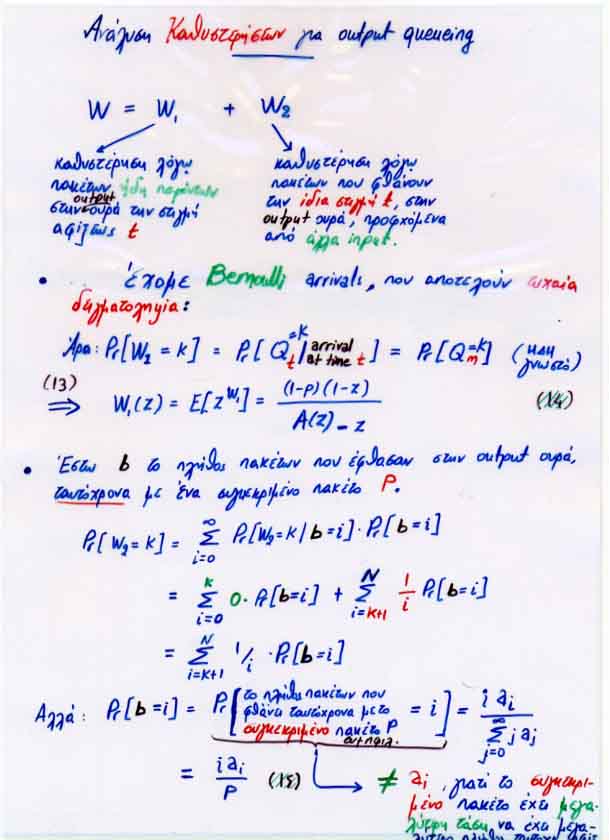 Ανάλυση Καθυστερήσεων για output queueing
W = W₁ + W₂
καθυστέρηση λόγω
πακέτων ήδη παρόντων
στην output ουρά την στιγμή
αφίξεως t
καθυστέρηση λόγω
πακέτων που φθάνουν
την ίδια στιγμή t, στην
output ουρά, προερχόμενα
από άλλα input.
• Έχομε Bernoulli arrivals, που αποτελούν τυχαία
δειγματοληψία:
Άρα: Pr[W₂ = k] = Pr[Qt=k | arrival at time t] = Pr[Qm=k] (ήδη γνωστό)
(13) ⇒ W₁(z) = E[z^W₁] = (1-p)(1-z) / A(z) - z (14)
• Έστω b το πλήθος πακέτων που έφθασαν στην output ουρά,
ταυτόχρονα με ένα συγκεκριμένο πακέτο P.
Pr[W₂ = k] = ∞Σi=0 Pr[W₂=k | b=i] · Pr[b=i]
= kΣi=0 0 · Pr[b=i] + NΣi=k+1 1/i Pr[b=i]
= NΣi=k+1 1/i · Pr[b=i]
Αλλά: Pr[b=i] = Pr[το πλήθος πακέτων που φθάνει ταυτόχρονα με το συγκεκριμένο πακέτο P = i] = i aᵢ / ∞Σj=0 j aj
= i aᵢ / P (15) ≠ aᵢ, γιατί το συγκεκρι-
μένο πακέτο έχει μεγα-
λύτερη τάση να έχει μεγα-